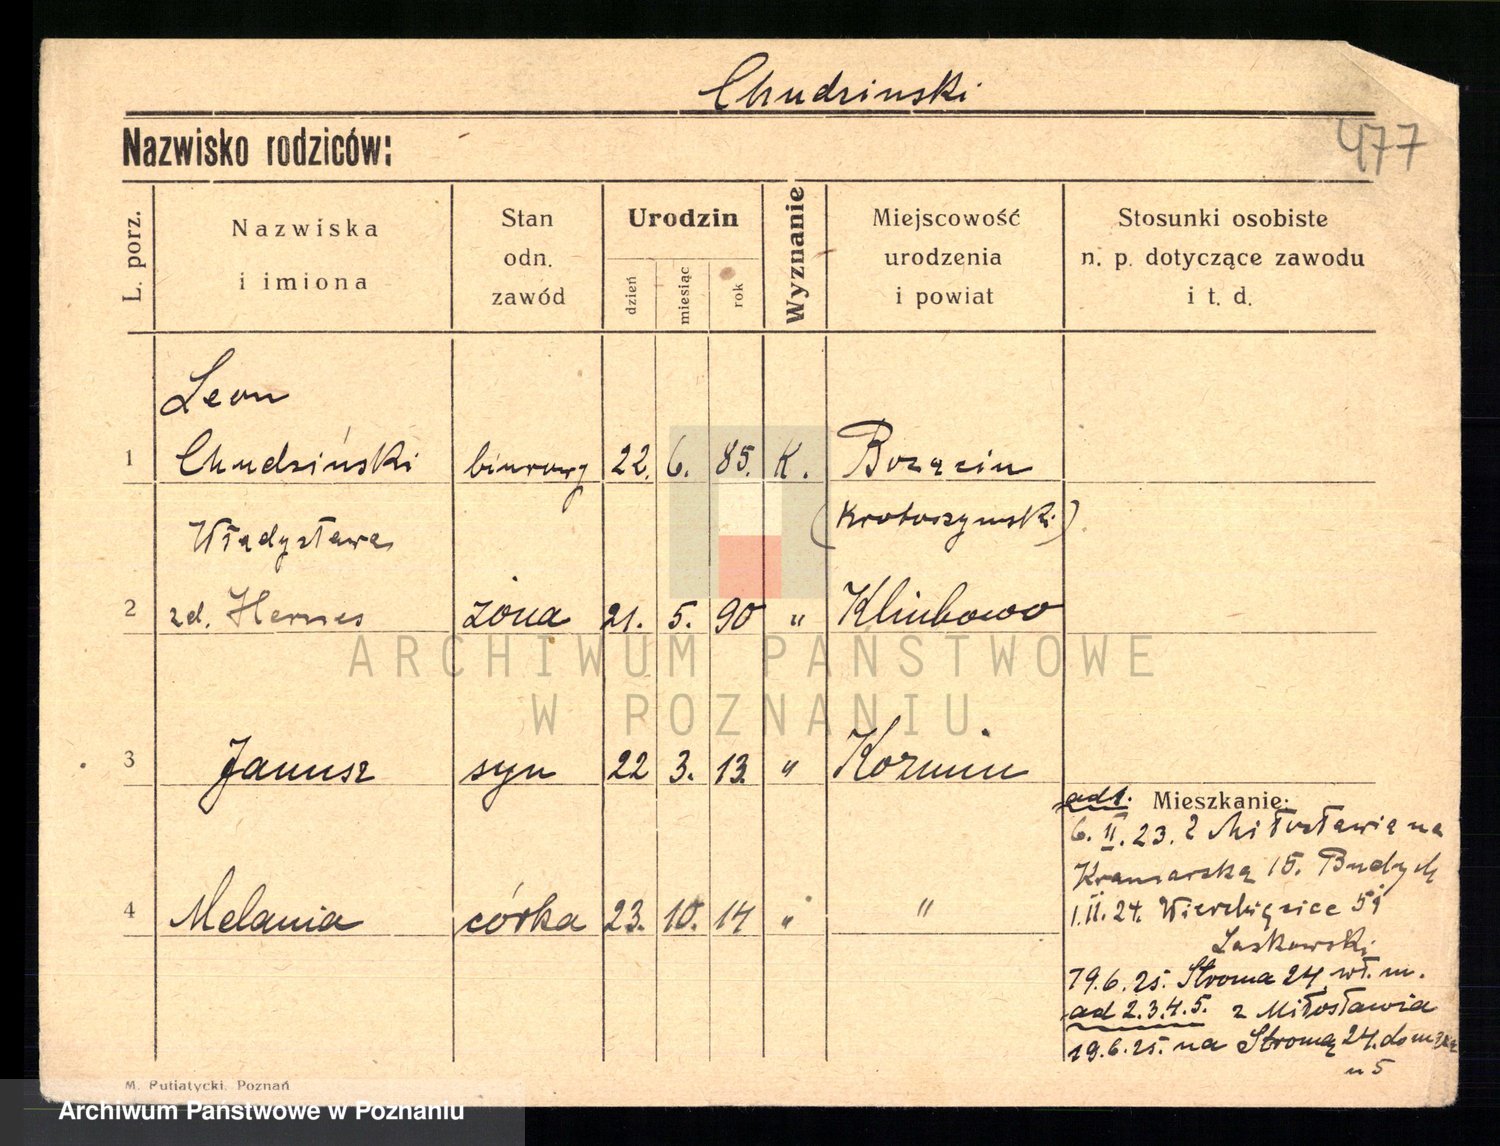 Chudzinski
477
Nazwisko rodziców:
L. porz.
Nazwiska
i imiona
Stan
odn.
zawód
Urodzin
dzień
miesiąc
rok
Wyznanie
Miejscowość
urodzenia
i powiat
Stosunki osobiste
n. p. dotyczące zawodu
i t. d.
Leon
1 Chudziński biurowy 22. 6. 85. K. Bozacin
(Krotoszynski)
Władysława
2 zd. Hermes żona 21. 5. 90 " Klinkowo
3 Janusz syn 22 3. 13. " Kozmin
4 Melania córka 23. 10. 14 " "
ad 1. Mieszkanie:
6. II. 23. z Miłosławia na
Kramarską 15. Budych
1. II. 24. Wierzbięcice
Laskowski
19.6.25. Stroma 24, wł. m.
ad 2.3.4.5. z Miłosławia
19.6.25. na Stromą 24. do m
n 5
M. Putiatycki, Poznań
ARCHIWUM PAŃSTWOWE
W POZNANIU
Archiwum Państwowe w Poznaniu